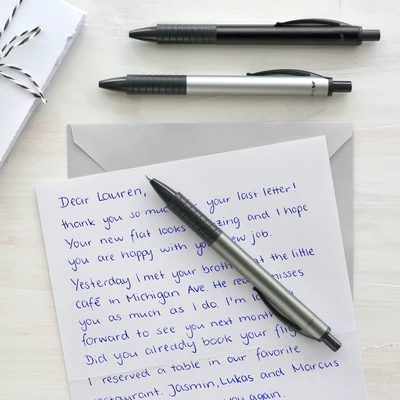 Dear Lauren,
thank you so your last letter!
Your new flat looks and I hope
you are happy with new job.
Yesterday I met your at the little
café in Michigan Ave. He misses
you as much as I do. I'm
forward to see you next
Did you already book your
I reserved a table in our favorite
Jasmin, Lukas and Marcus
you again.